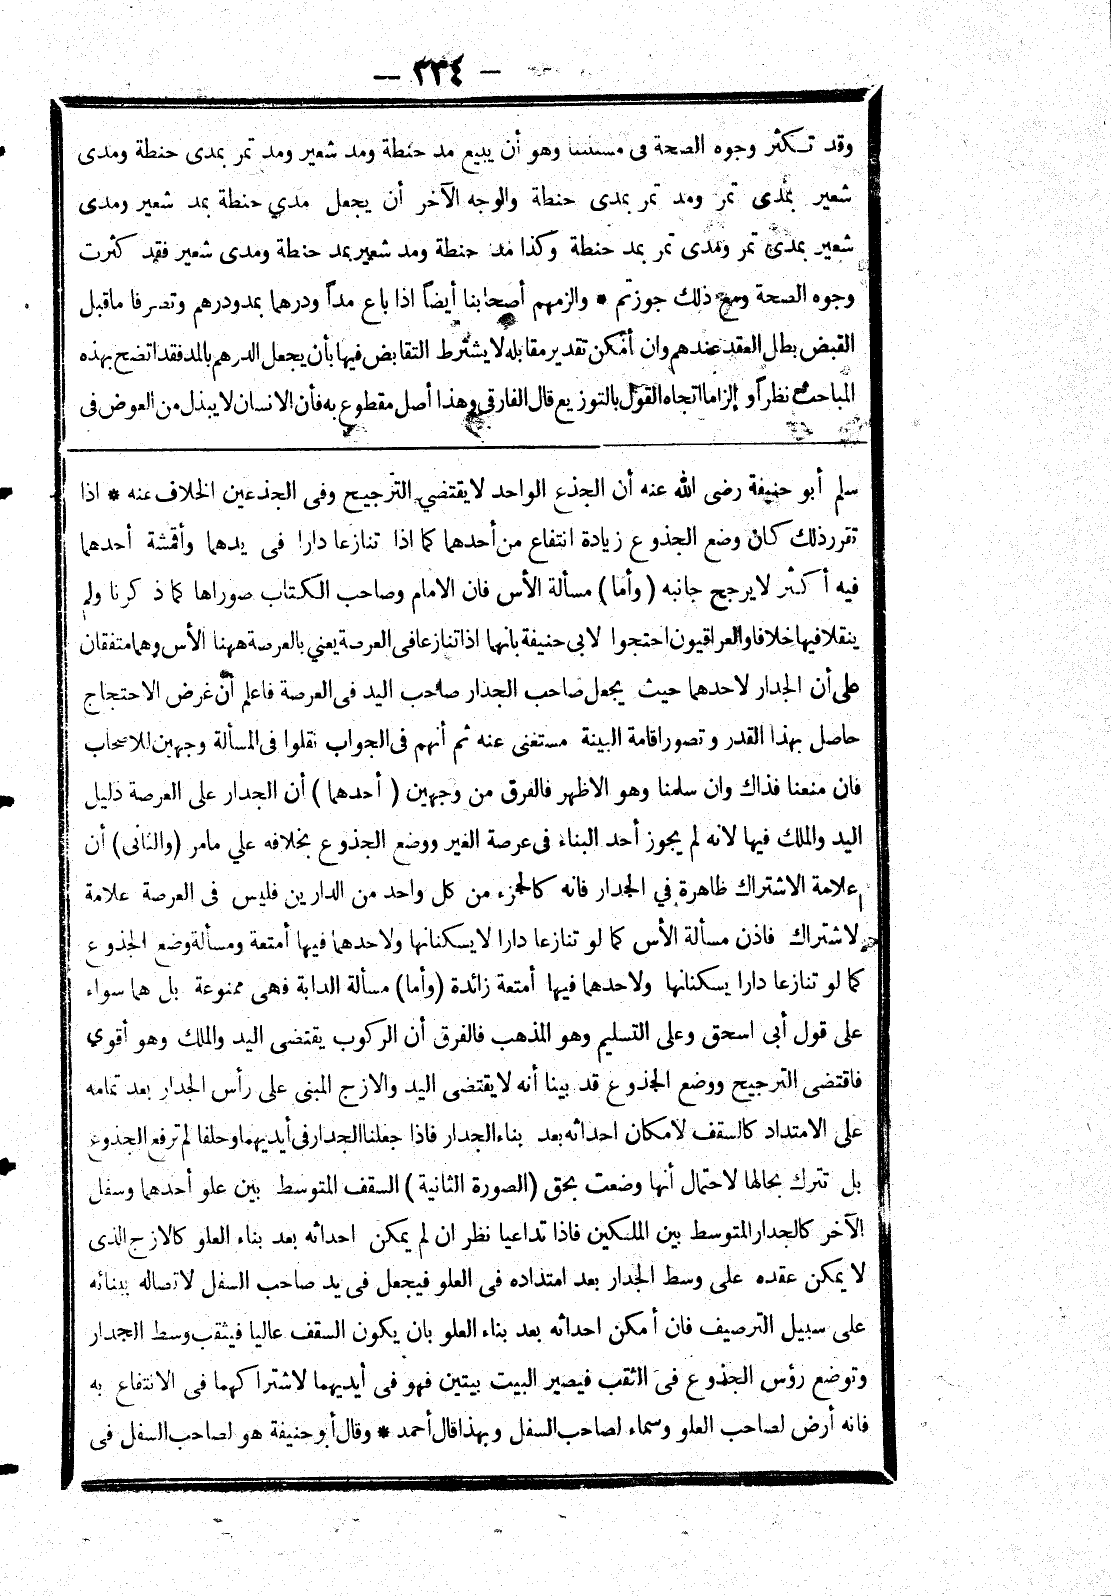 — ٣٣٤ —
وقد تكثر وجوه الصحة فى مسئلتنا وهو أن يبيع مد حنطة ومد شعير ومد تمر بمدى حنطة ومدى
شعير بمدى تمر ومد تمر بمدى حنطة والوجه الآخر أن يجعل مدي حنطة بمد شعير ومدى
شعير بمدى تمر ومدى تمر بمد حنطة وكذا مد حنطة ومد شعير بمد حنطة ومدى شعير فقد كثرت
وجوه الصحة ومع ذلك جوزتم * والزمهم أصحابنا أيضاً اذا باع مداً ودرهما بمدودرهم وتصرفا ماقبل
القبض بطل العقد عندهم وان أمكن تقدير مقابله لا يشترط التقابض فيها بأن يجعل الدرهم بالمد فقد اتضح بهذه
المباحث نظراً و إلزاما اتجاه القول بالتوزيع قال الفارقى وهذا أصل مقطوع به فأن الانسان لا يبذل من العوض فى
سلم أبو حنيفة رضى الله عنه أن الجذع الواحد لا يقتضي الترجيح وفى الجذعين الخلاف عنه * اذا
تقرر ذلك كان وضع الجذوع زيادة انتفاع من أحدهما كما اذا تنازعا دارا فى يدهما وأقمشة أحدهما
فيه أكثر لا يرجح جانبه ( وأما ) مسألة الأس فان الامام وصاحب الكتاب صوراها كما ذكرنا ولم
ينقلا فيها خلافا والعراقيون احتجوا لابى حنيفة بانهما اذا تنازعا فى العرصة يعني بالعرصة ههنا الأس وهما متفقان
على أن الجدار لاحدهما حيث يجعل صاحب الجدار صاحب اليد فى العرصة فاعلم أن غرض الاحتجاج
حاصل بهذا القدر وتصور اقامة البينة مستغنى عنه ثم أنهم فى الجواب نقلوا فى المسألة وجهين للاصحاب
فان منعنا فذاك وان سلمنا وهو الاظهر فالفرق من وجهين ( أحدهما ) أن الجدار على العرصة دليل
اليد والملك فيها لانه لم يجوز أحد البناء فى عرصة الغير ووضع الجذوع بخلافه علي مامر (والثانى) أن
علامة الاشتراك ظاهرة في الجدار فانه كالجزء من كل واحد من الدارين فليس فى العرصة علامة
لاشتراك فاذن مسألة الأس كما لو تنازعا دارا لا يسكنانها ولاحدهما فيها أمتعة ومسألة وضع الجذوع
كما لو تنازعا دارا يسكنانها ولاحدهما فيها أمتعة زائدة (وأما) مسألة الدابة فهى ممنوعة بل هما سواء
على قول أبى اسحق وعلى التسليم وهو المذهب فالفرق أن الركوب يقتضى اليد والملك وهو أقوي
فاقتضى الترجيح ووضع الجذوع قد بينا أنه لا يقتضى اليد والازج المبنى على رأس الجدار بعد تمامه
على الامتداد كالسقف لامكان احداثه بعد بناء الجدار فاذا جعلنا الجدار فى أيديهما وحلفا لم ترفع الجذوع
بل تترك بحالها لاحتمال أنها وضعت بحق (الصورة الثانية) السقف المتوسط بين علو أحدهما وسفل
الآخر كالجدار المتوسط بين الملكين فاذا تداعيا نظر ان لم يمكن احداثه بعد بناء العلو كالازج الذى
لا يمكن عقده على وسط الجدار بعد امتداده فى العلو فيجعل فى يد صاحب السفل لاتصاله ببنائه
على سبيل الترصيف فان أمكن احداثه بعد بناء العلو بان يكون السقف عاليا فيثقب وسط الجدار
وتوضع رؤس الجذوع فى الثقب فيصير البيت بيتين فهو فى أيديهما لاشتراكهما فى الانتفاع به
فانه أرض لصاحب العلو وسماء لصاحب السفل وبهذا قال أحمد * وقال أبو حنيفة هو لصاحب السفل فى